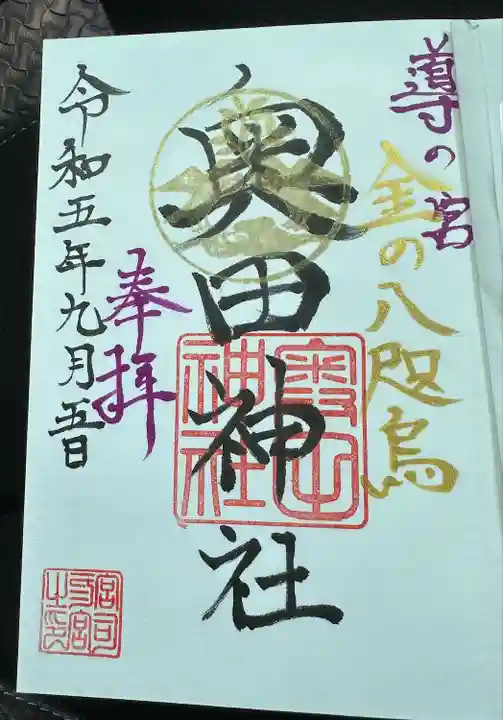 導の宮
金の八咫烏
奥田神社
奉拝
令和五年九月五日